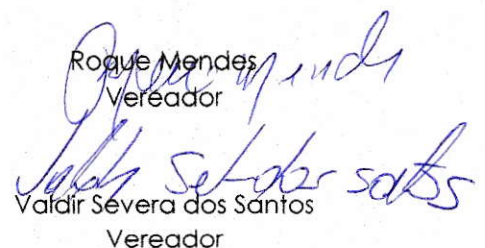 Roque Mendes
Vereador
Valdir Severa dos Santos
Vereador